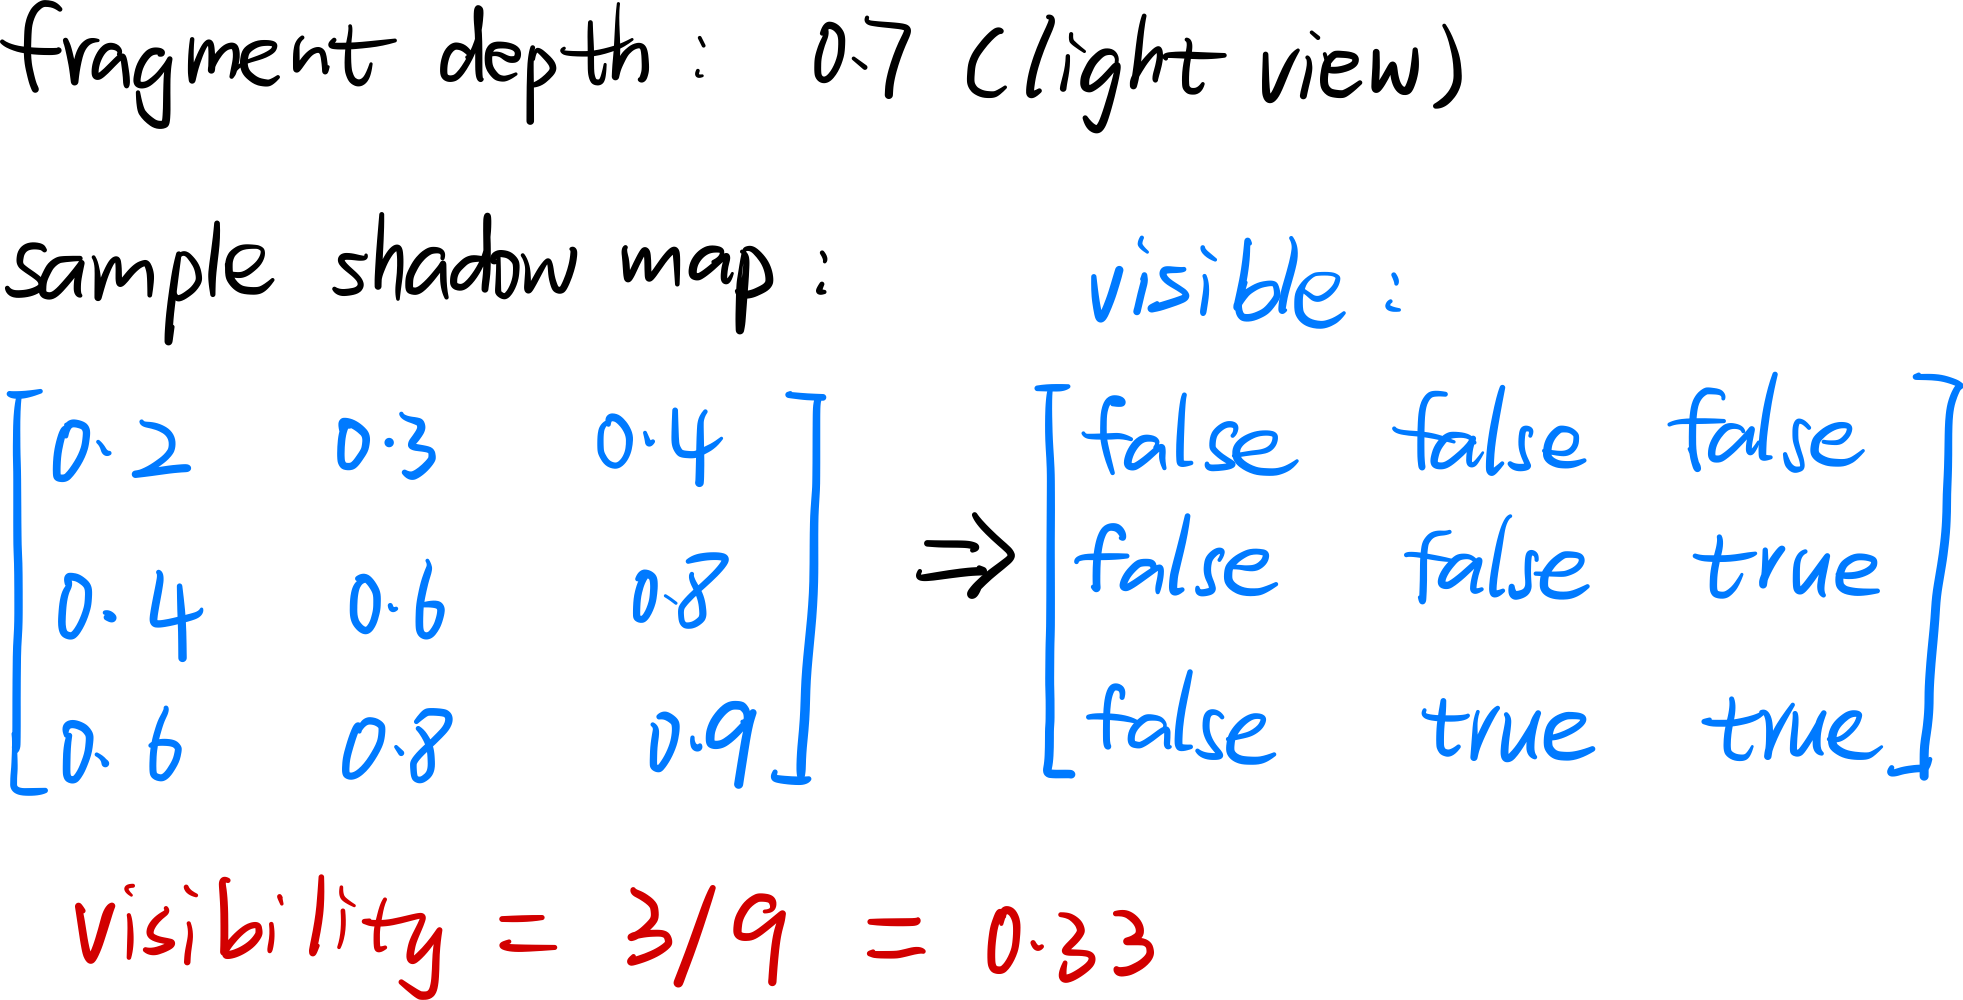 fragment depth: 0.7 (light view)
sample shadow map: visible:
0.2 0.3 0.4 ⇒ false false false
0.4 0.6 0.8 false false true
0.6 0.8 0.9 false true true
visibility = 3/9 = 0.33